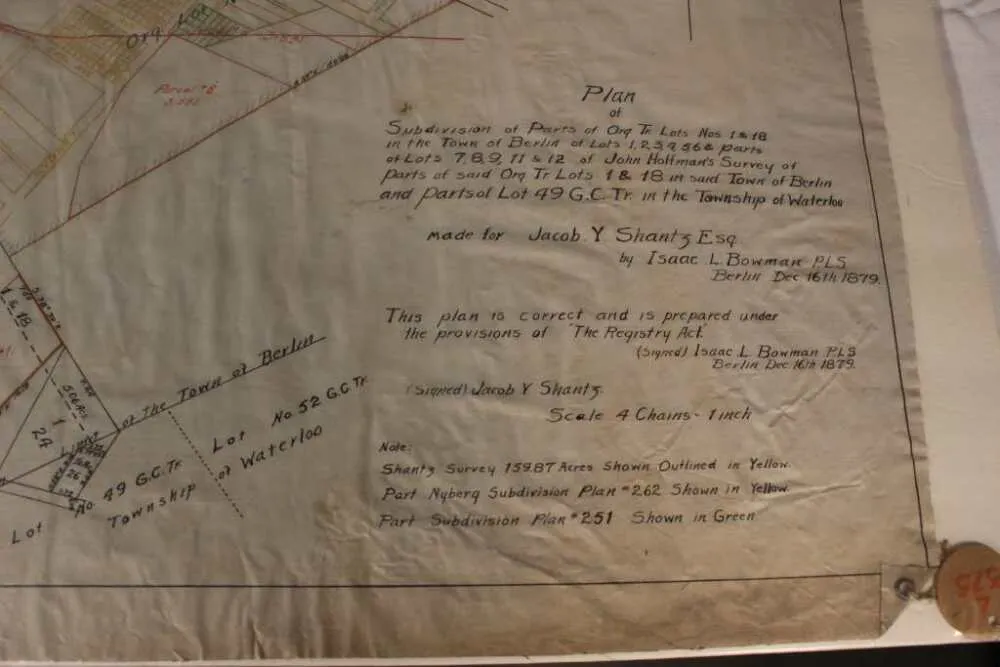 Org
Lot
Parcel #8
Plan
of
Subdivision of Parts of Org Tr. Lots Nos 1 & 18
in the Town of Berlin of Lots 1, 2, 3, 4, 5, 6 & parts
of Lots 7, 8, 9, 11 & 12 of John Hoffman's Survey of
parts of said Org Tr Lots 1 & 18 in said Town of Berlin
and parts of Lot 49 G.C. Tr. in the Township of Waterloo
made for Jacob Y Shantz Esq.
by Isaac L. Bowman PLS
Berlin Dec 16th 1879.
This plan is correct and is prepared under
the provisions of "The Registry Act."
(Signed) Isaac L. Bowman PLS
Berlin Dec 16th 1879.
(Signed) Jacob Y Shantz.
Scale 4 Chains - 1 inch
Note:
Shantz Survey 159.87 Acres Shown Outlined in Yellow.
Part Nyberg Subdivision Plan #262 Shown in Yellow.
Part Subdivision Plan #251 Shown in Green
& 18
1
24
26
of The Town of Berlin
Lot No 52 G.C. Tr.
Lot No. 49 G.C. Tr.
Township of Waterloo
375